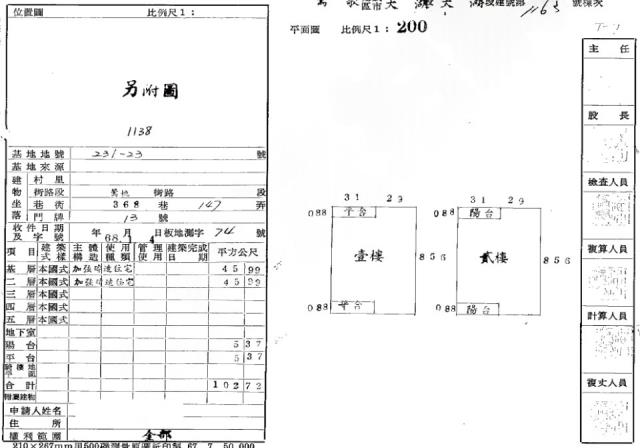 位置圖 比例尺1:
另附圖
1138
基地地號 231-23 號
基地來源
建 村里
物 街路段 鶯桃 街路 段
坐 巷衖 368 巷 147 弄
落 門牌 13 號
收件日期及字號 年 月 日板地測字 74 號
68. 1 4
項目 建築式樣 主體構造 使用種類 管理使用 建築完成日期 平方公尺
基層 本國式 加強磚造住宅 45 99
二層 本國式 加強磚造住宅 45 99
三層 本國式
四層 本國式
五層 本國式
地下室
陽台 5 37
平台 5 37
騎樓地平面
合計 102 72
附屬建物
申請人姓名
住所
權利範圍 全部
210×267mm
67. 7. 50,000
段建號部 1163 號棟次
平面圖 比例尺1: 200
31 29
088 平台
壹樓
856
088 平台
31 29
088 陽台
貳樓
856
088 陽台
主任
股長
檢查人員
複算人員
計算人員
複丈人員